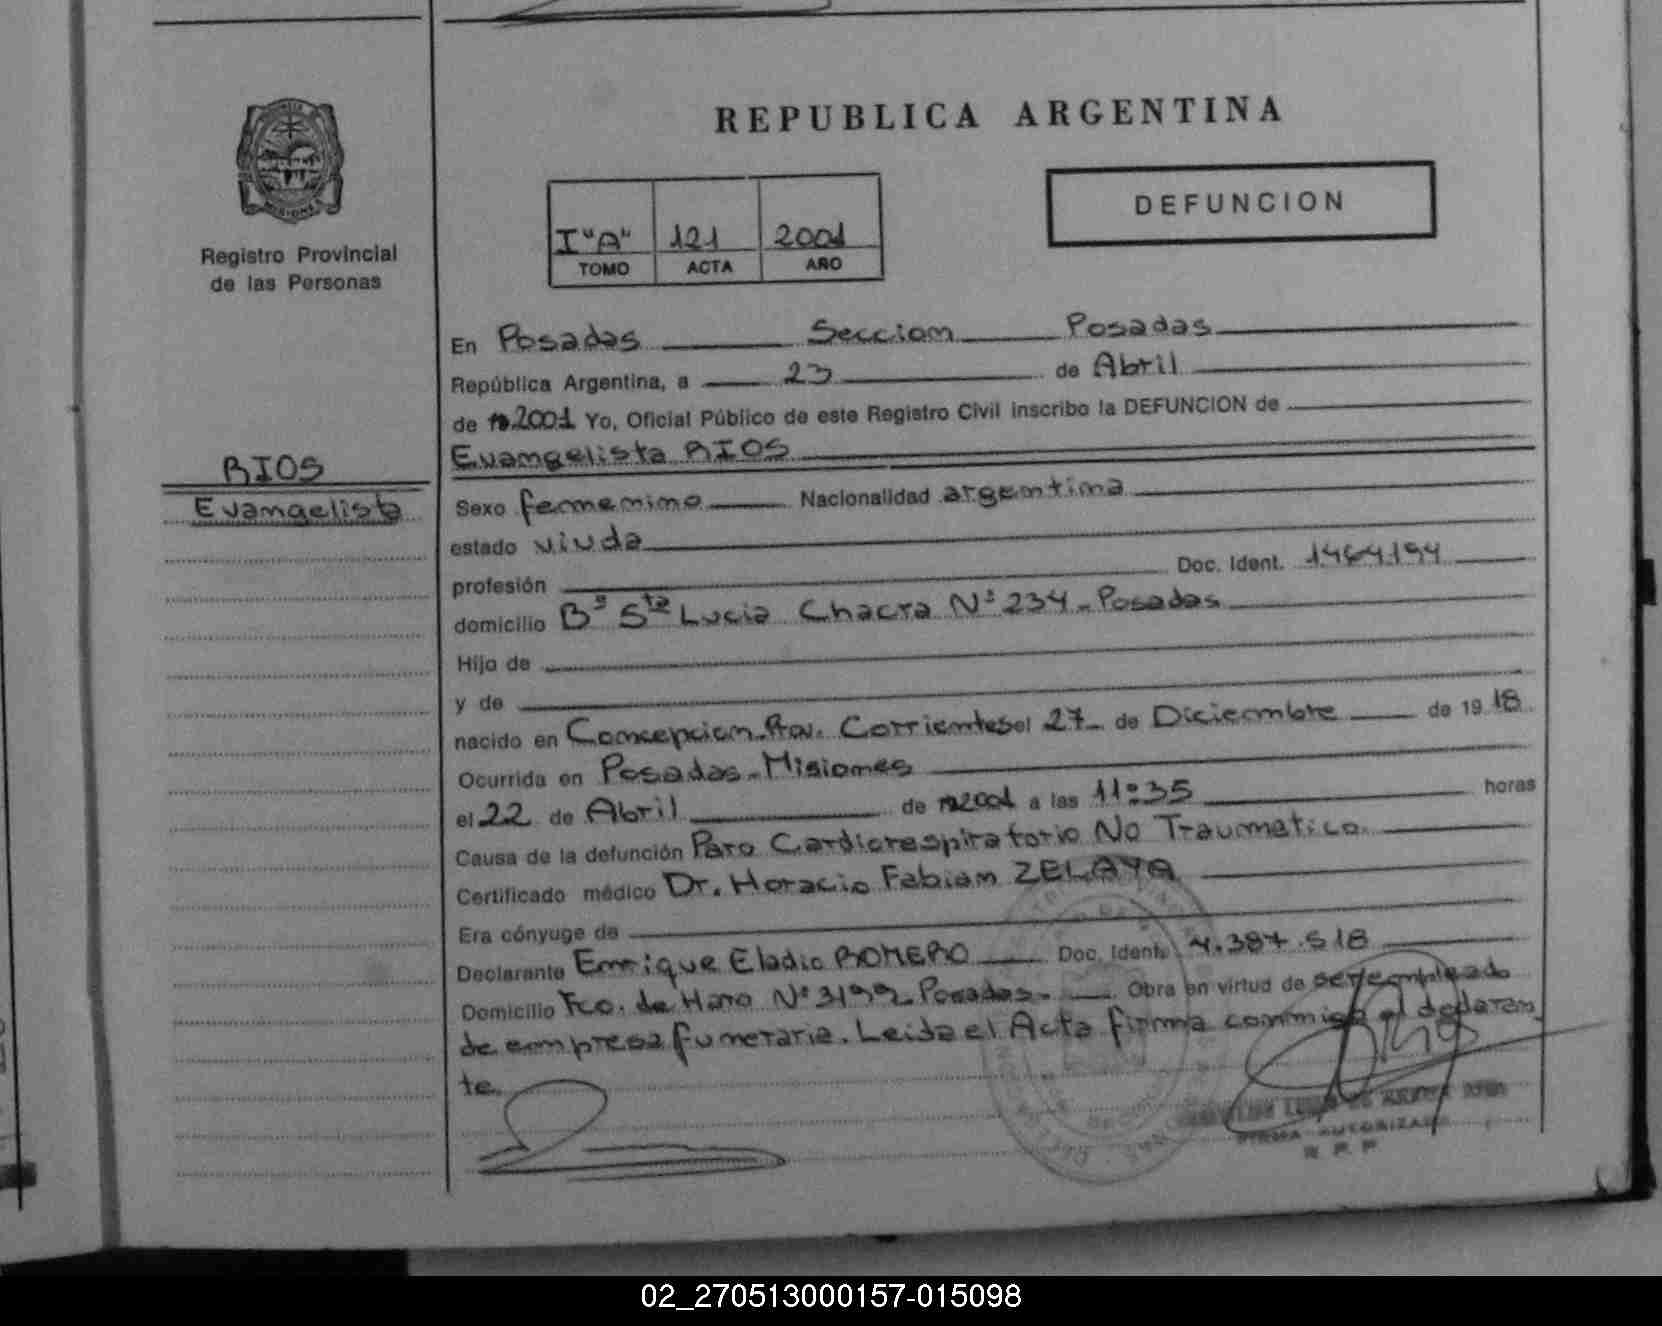 REPUBLICA ARGENTINA
DEFUNCION
I "A" 121 2001
TOMO ACTA AÑO
MISIONES
Registro Provincial
de las Personas
RIOS
Evangelista
En Posadas Seccion Posadas
República Argentina, a 23 de Abril
de 2001 Yo, Oficial Público de este Registro Civil inscribo la DEFUNCION de
Evangelista RIOS
Sexo femenino Nacionalidad argentina
estado viuda
profesión Doc. Ident. 1464194
domicilio Bº Sta Lucia Chacra Nº 234 - Posadas
Hijo de
y de
nacido en Concepcion - Pov. Corrientes el 27 - de Diciembre de 19 18
Ocurrida en Posadas - Misiones
el 22 de Abril de 2001 a las 11:35 horas
Causa de la defunción Paro Cardiorespiratorio No Traumatico.
Certificado médico Dr. Horacio Fabian ZELAYA
Era cónyuge de
Declarante Enrique Eladio ROMERO Doc. Ident. 4.387.518
Domicilio Fco. de Haro Nº 3199 - Posadas. Obra en virtud de ser empleado
de empresa funeraria. Leida el Acta firma conmigo el declaran
te.
FIRMA AUTORIZADA
R. P. P
02_270513000157-015098